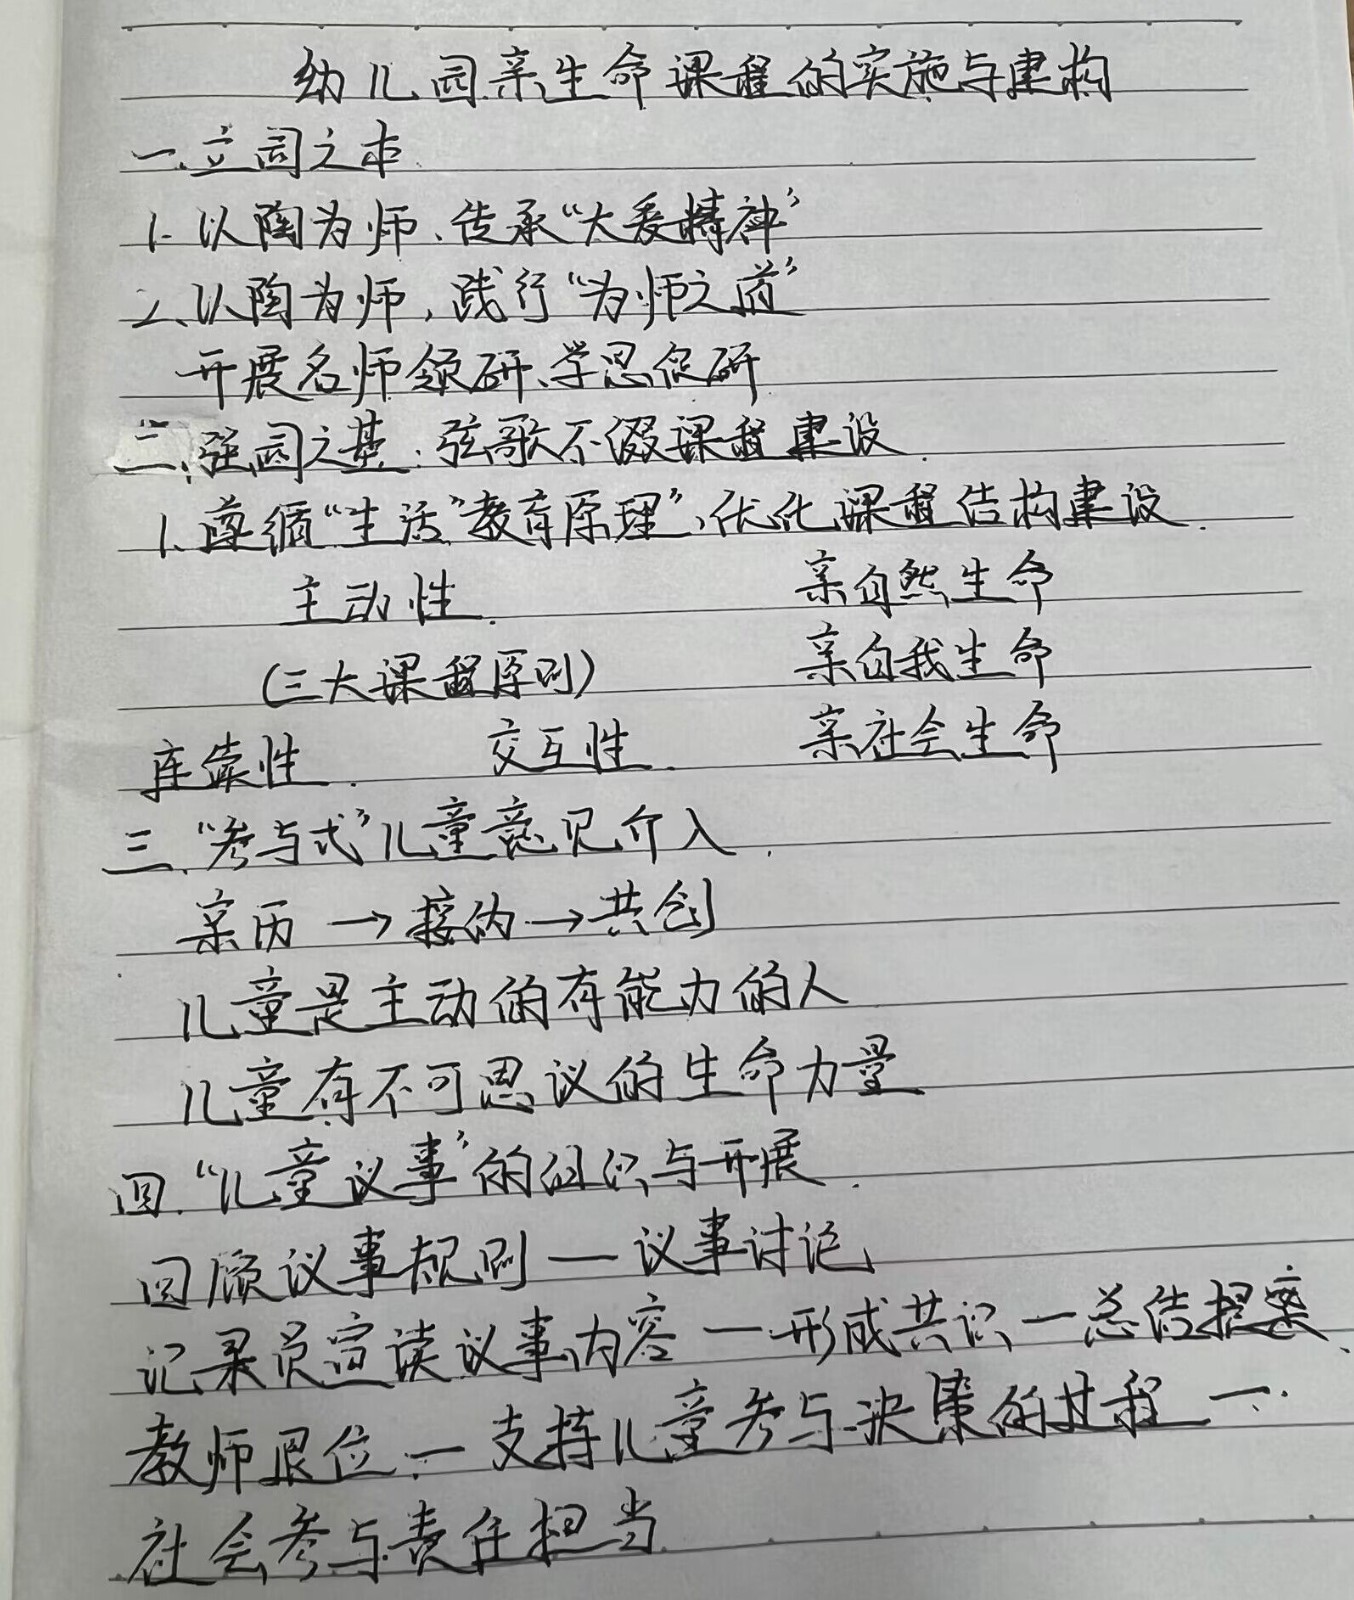 幼儿园亲生命课程的实施与建构
一、立园之本
1. 以陶为师、传承“大爱精神”
2、以陶为师，践行“为师之道”
开展名师领研、学思促研
二、强园之基：弦歌不缀课程建设.
1、遵循“生活”教育原理”，优化课程结构建设.
主动性. 亲自然生命
(三大课程原则) 亲自我生命
连续性. 交互性. 亲社会生命
三、“参与式”儿童意见介入.
亲历→接纳→共创
儿童是主动的有能力的人
儿童有不可思议的生命力量
四、“儿童议事”的组织与开展.
回顾议事规则—议事讨论
记录员宣读议事内容—形成共识—总结提案、
教师退位—支持儿童参与决策的过程—
社会参与责任担当